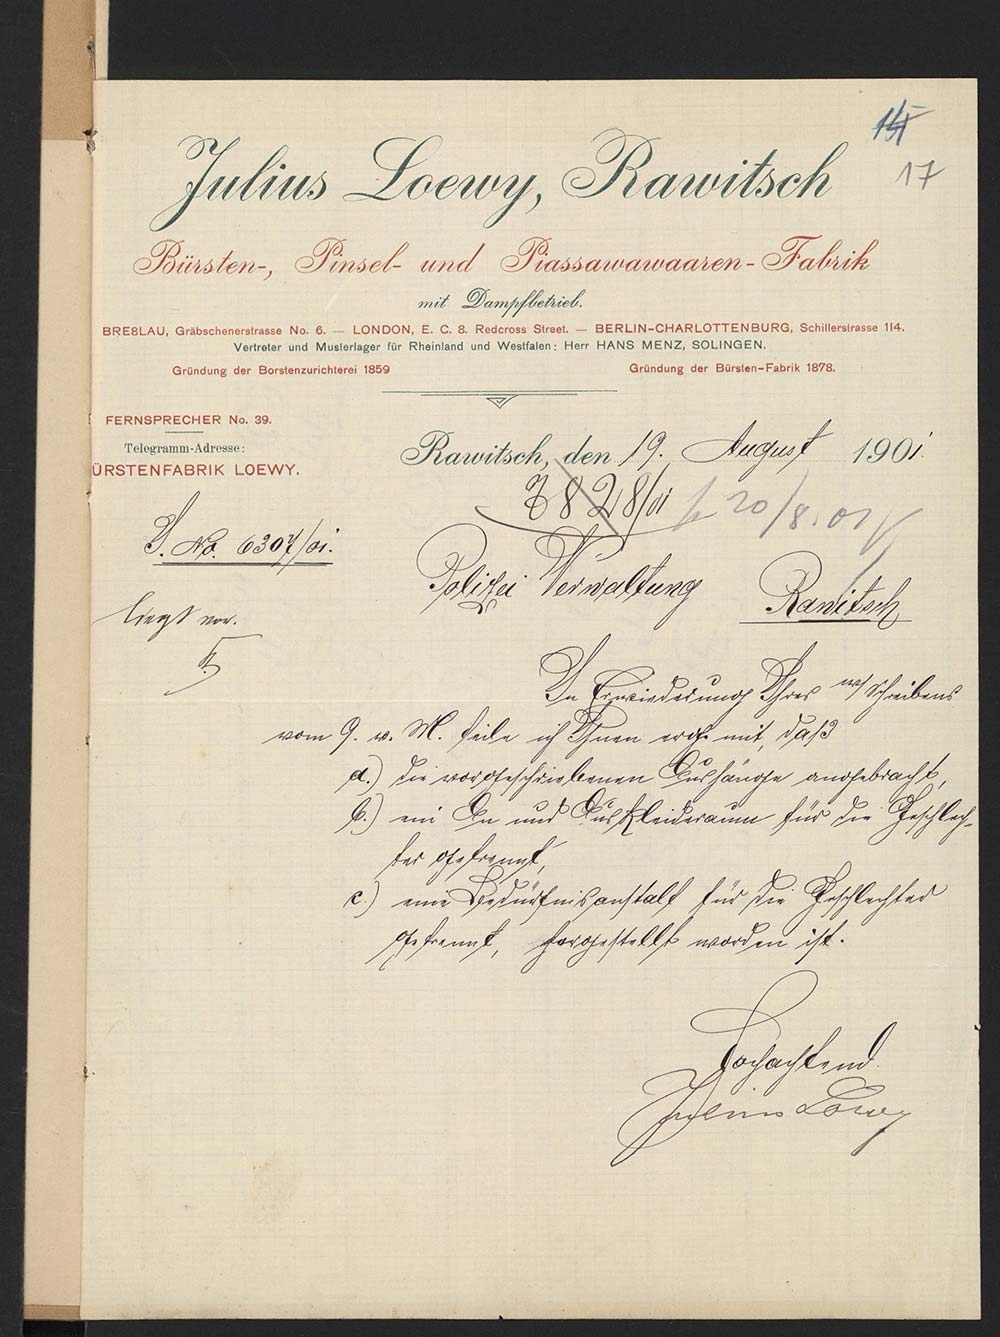 17
Julius Loewy, Rawitsch
Bürsten-, Pinsel- und Piassawawaaren-Fabrik
mit Dampfbetrieb.
BRESLAU, Gräbschenerstrasse No. 6. — LONDON, E. C. 8. Redcross Street. — BERLIN-CHARLOTTENBURG, Schillerstrasse 114.
Vertreter und Musterlager für Rheinland und Westfalen: Herr HANS MENZ, SOLINGEN.
Gründung der Borstenzurichterei 1859
Gründung der Bürsten-Fabrik 1878.
FERNSPRECHER No. 39.
Telegramm-Adresse:
ÜRSTENFABRIK LOEWY.
Rawitsch, den 19. August 1901.
7828/01
20/8.01
J. No. 6307/01.
liegt vor.
Polizei Verwaltung
Rawitsch
In Erwiederung Ihres w/ Schreibens
vom 9. v. M. teile ich Ihnen ergb. mit, daß
a.) die vorgeschriebenen Aushänge angebracht,
b.) ein An und Auskleideraum für die Geschlech-
ter getrennt,
c.) eine Bedürfnisanstalt für die Geschlechter
getrennt, hergestellt worden ist.
Hochachtend
Julius Loewy